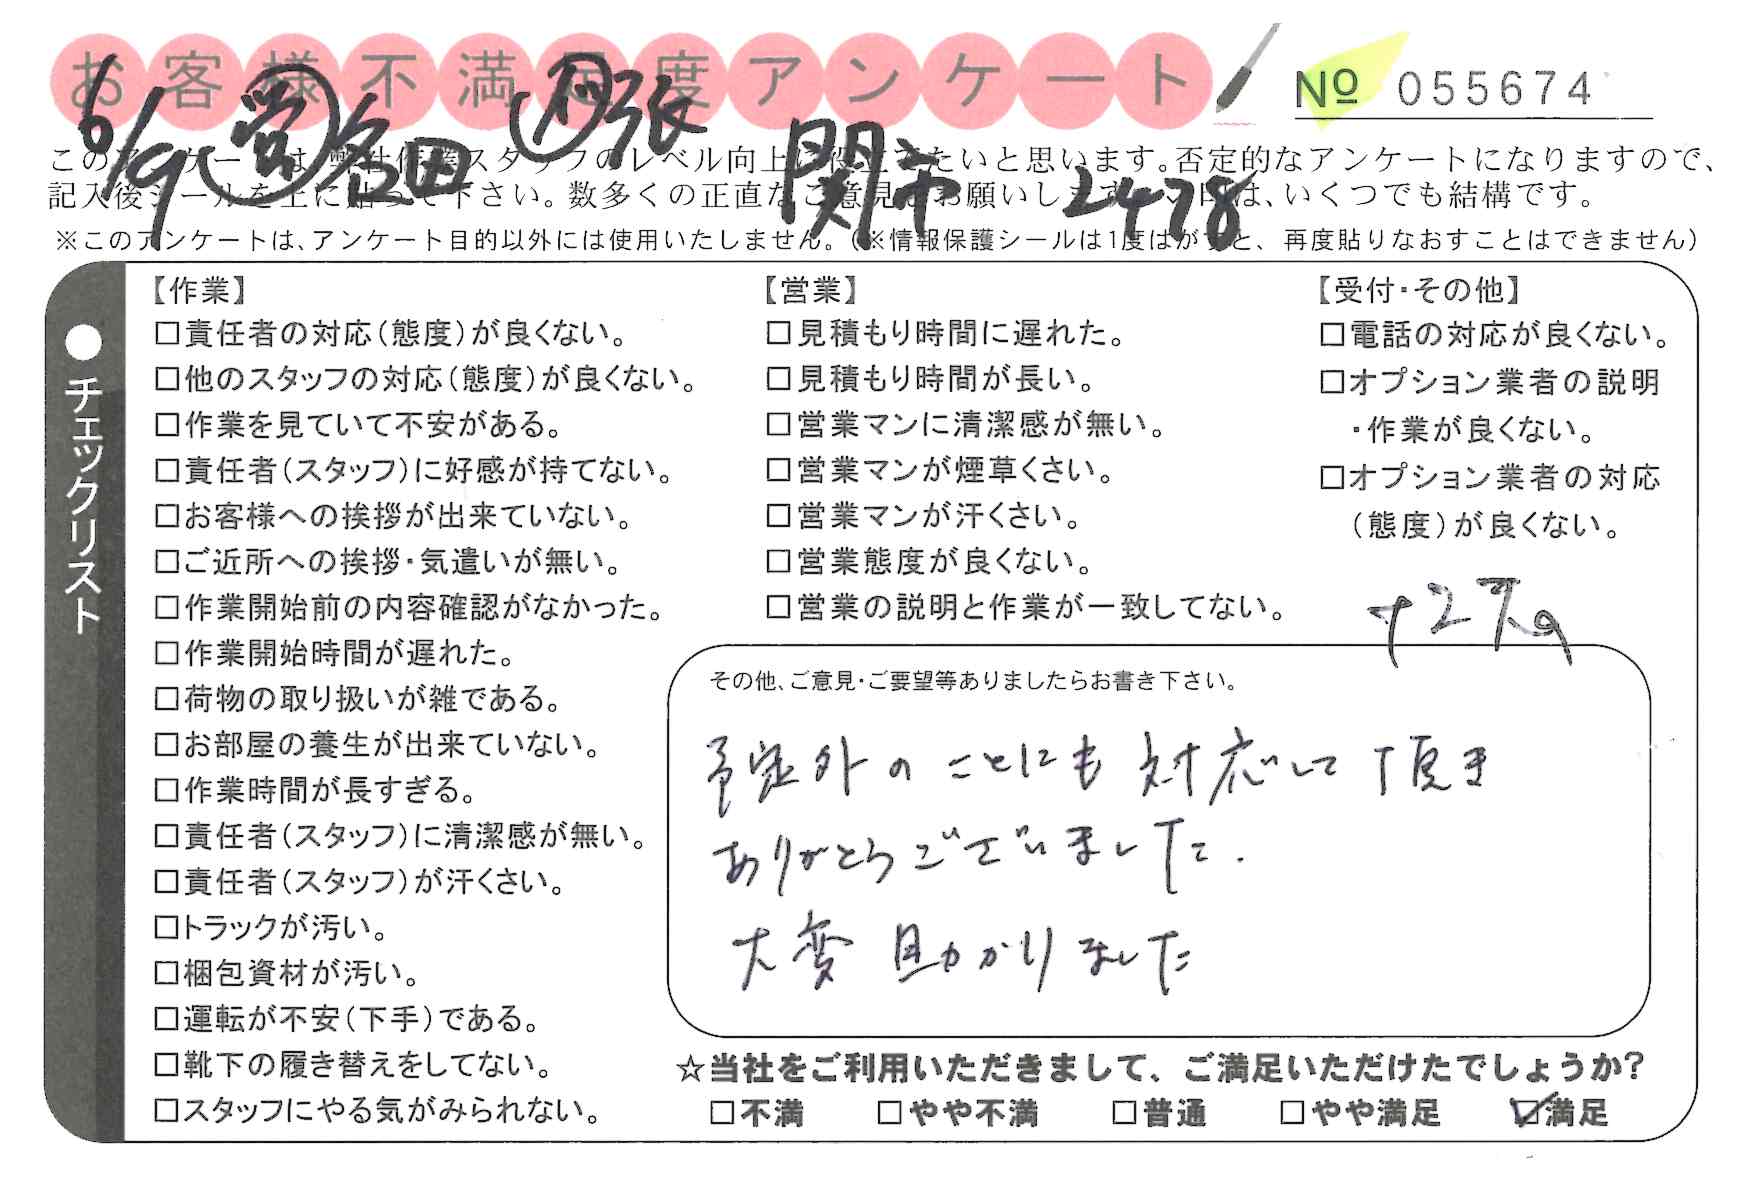 お客様不満足度アンケート
№ 055674
6/9 営 名田 作 張 関市 2478
このアンケートは、弊社作業スタッフのレベル向上に役立てたいと思います。否定的なアンケートになりますので、
記入後シールを上に貼って下さい。数多くの正直なご意見をお願いします。い印は、いくつでも結構です。
※このアンケートは、アンケート目的以外には使用いたしません。(※情報保護シールは1度はがすと、再度貼りなおすことはできません)
●チェックリスト
【作業】
□責任者の対応(態度)が良くない。
□他のスタッフの対応(態度)が良くない。
□作業を見ていて不安がある。
□責任者(スタッフ)に好感が持てない。
□お客様への挨拶が出来ていない。
□ご近所への挨拶・気遣いが無い。
□作業開始前の内容確認がなかった。
□作業開始時間が遅れた。
□荷物の取り扱いが雑である。
□お部屋の養生が出来ていない。
□作業時間が長すぎる。
□責任者(スタッフ)に清潔感が無い。
□責任者(スタッフ)が汗くさい。
□トラックが汚い。
□梱包資材が汚い。
□運転が不安(下手)である。
□靴下の履き替えをしてない。
□スタッフにやる気がみられない。
【営業】
□見積もり時間に遅れた。
□見積もり時間が長い。
□営業マンに清潔感が無い。
□営業マンが煙草くさい。
□営業マンが汗くさい。
□営業態度が良くない。
□営業の説明と作業が一致してない。
【受付・その他】
□電話の対応が良くない。
□オプション業者の説明
・作業が良くない。
□オプション業者の対応
(態度)が良くない。
その他、ご意見・ご要望等ありましたらお書き下さい。
予定外のことにも対応して頂き
ありがとうございました.
大変助かりました
☆当社をご利用いただきまして、ご満足いただけたでしょうか?
□不満 □やや不満 □普通 □やや満足 ☑満足